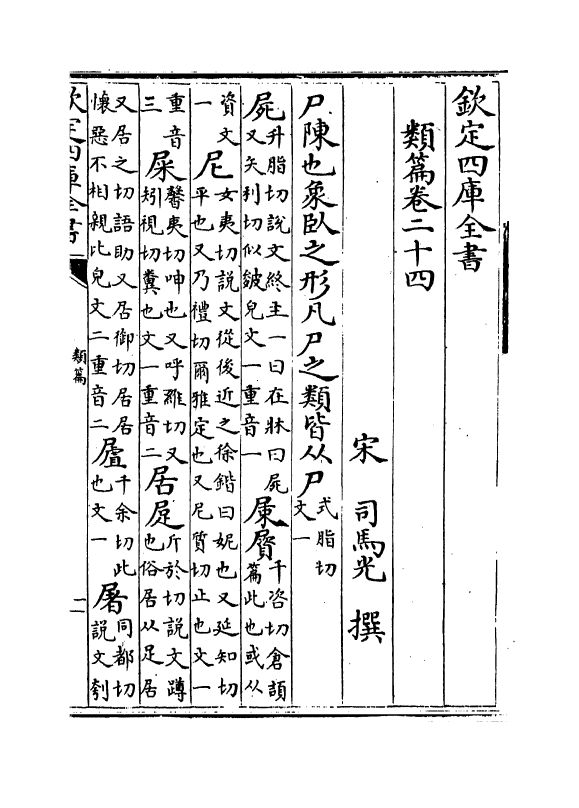 欽定四庫全書
類篇卷二十四
宋 司馬光 撰
尸陳也象臥之形凡尸之類皆从尸式脂切文一
屍升脂切說文終主一曰在牀曰屍又矢利切似皴皃文一重音一 𡱁𡳐千咨切倉頡篇此也或从
資文一 尼女夷切說文從後近之徐鍇曰妮也又延知切平也又乃禮切爾雅定也又尼質切止也文一
重音三 屎馨夷切呻也又呼雞切又矧視切糞也文一重音二 居𡱐斤於切說文蹲也俗居从足居
又居之切語助又居御切居居懷惡不相親比皃文二重音二 㞔千余切此也文一 屠同都切說文刳
欽定四庫全書
類篇
一